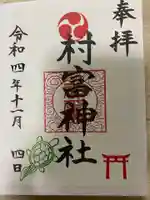 奉拝
村富神社
令和四年十一月
四日